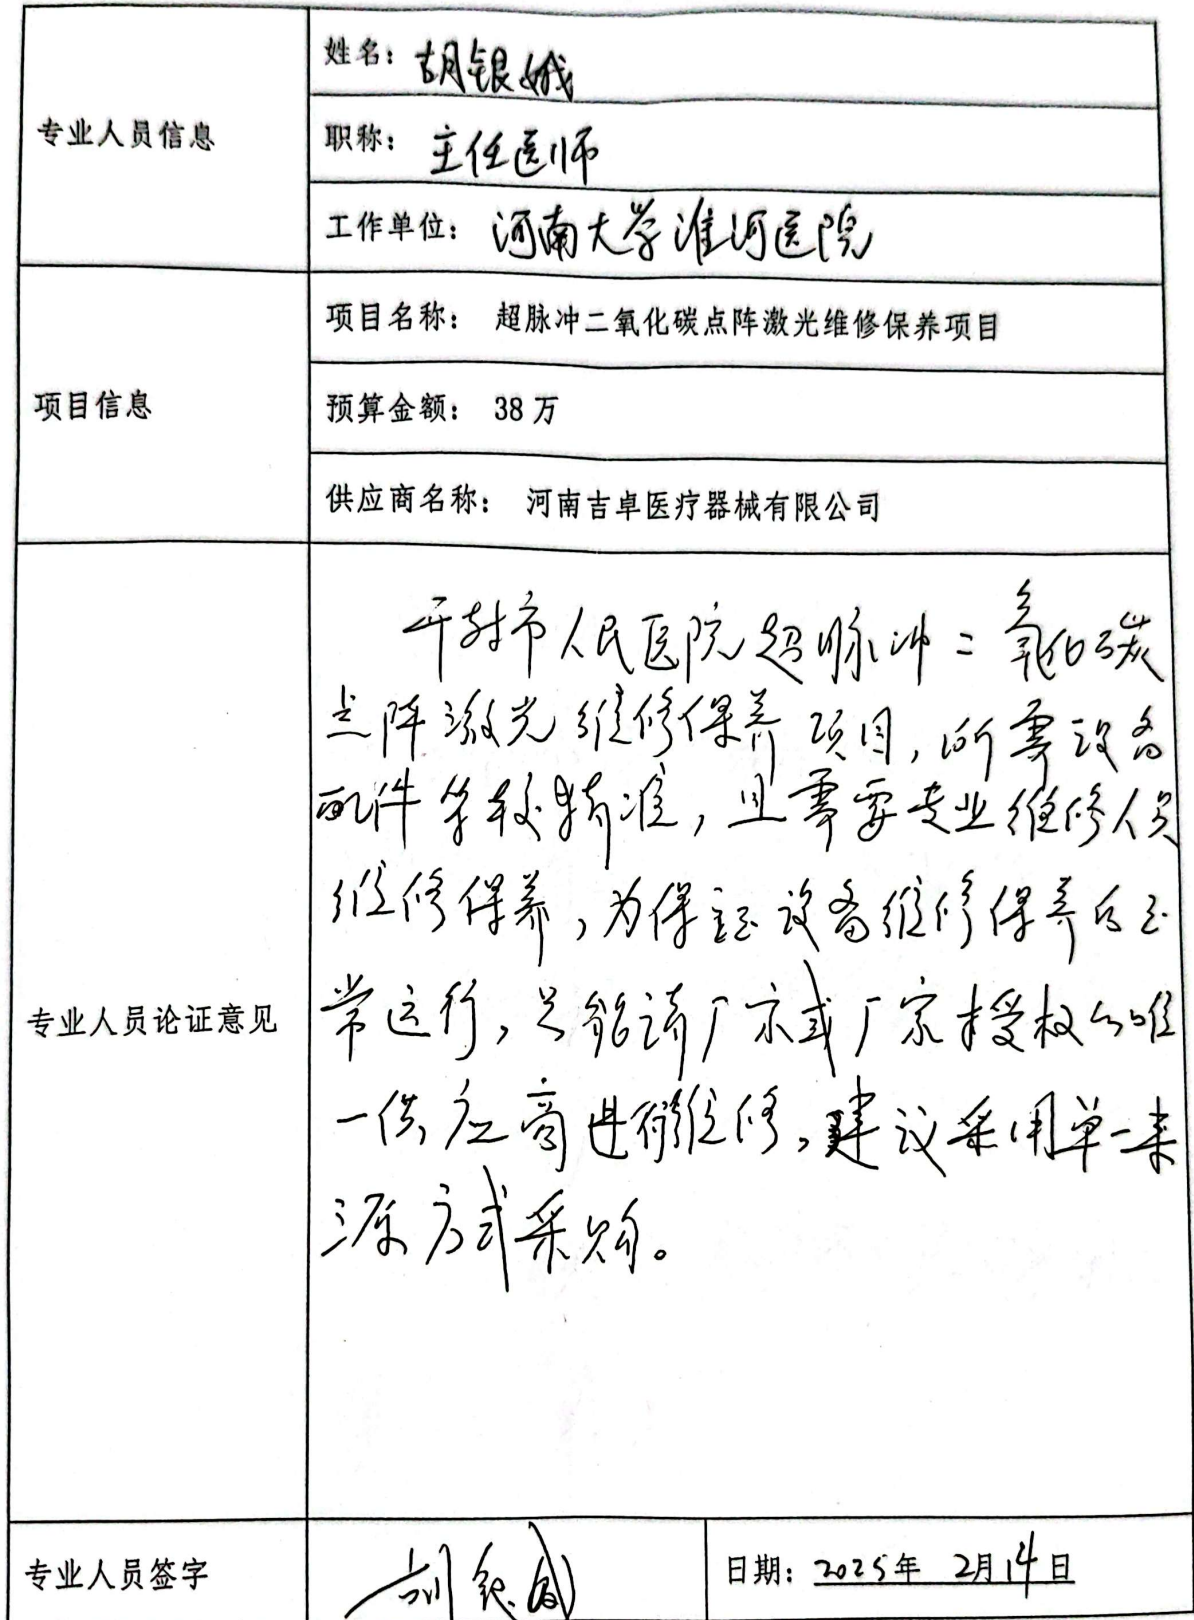 专业人员信息
姓名：胡银娥
职称：主任医师
工作单位：河南大学淮河医院
项目信息
项目名称：超脉冲二氧化碳点阵激光维修保养项目
预算金额：38万
供应商名称：河南吉卓医疗器械有限公司
专业人员论证意见
开封市人民医院超脉冲二氧化碳
点阵激光维修保养项目，所需设备
配件参数精准，且需要专业维修人员
维修保养，为保证设备维修保养后正
常运行，只能请厂家或厂家授权的唯
一供应商进行维修，建议采用单一来
源方式采购。
专业人员签字
胡银娥
日期：2025年 2月14日